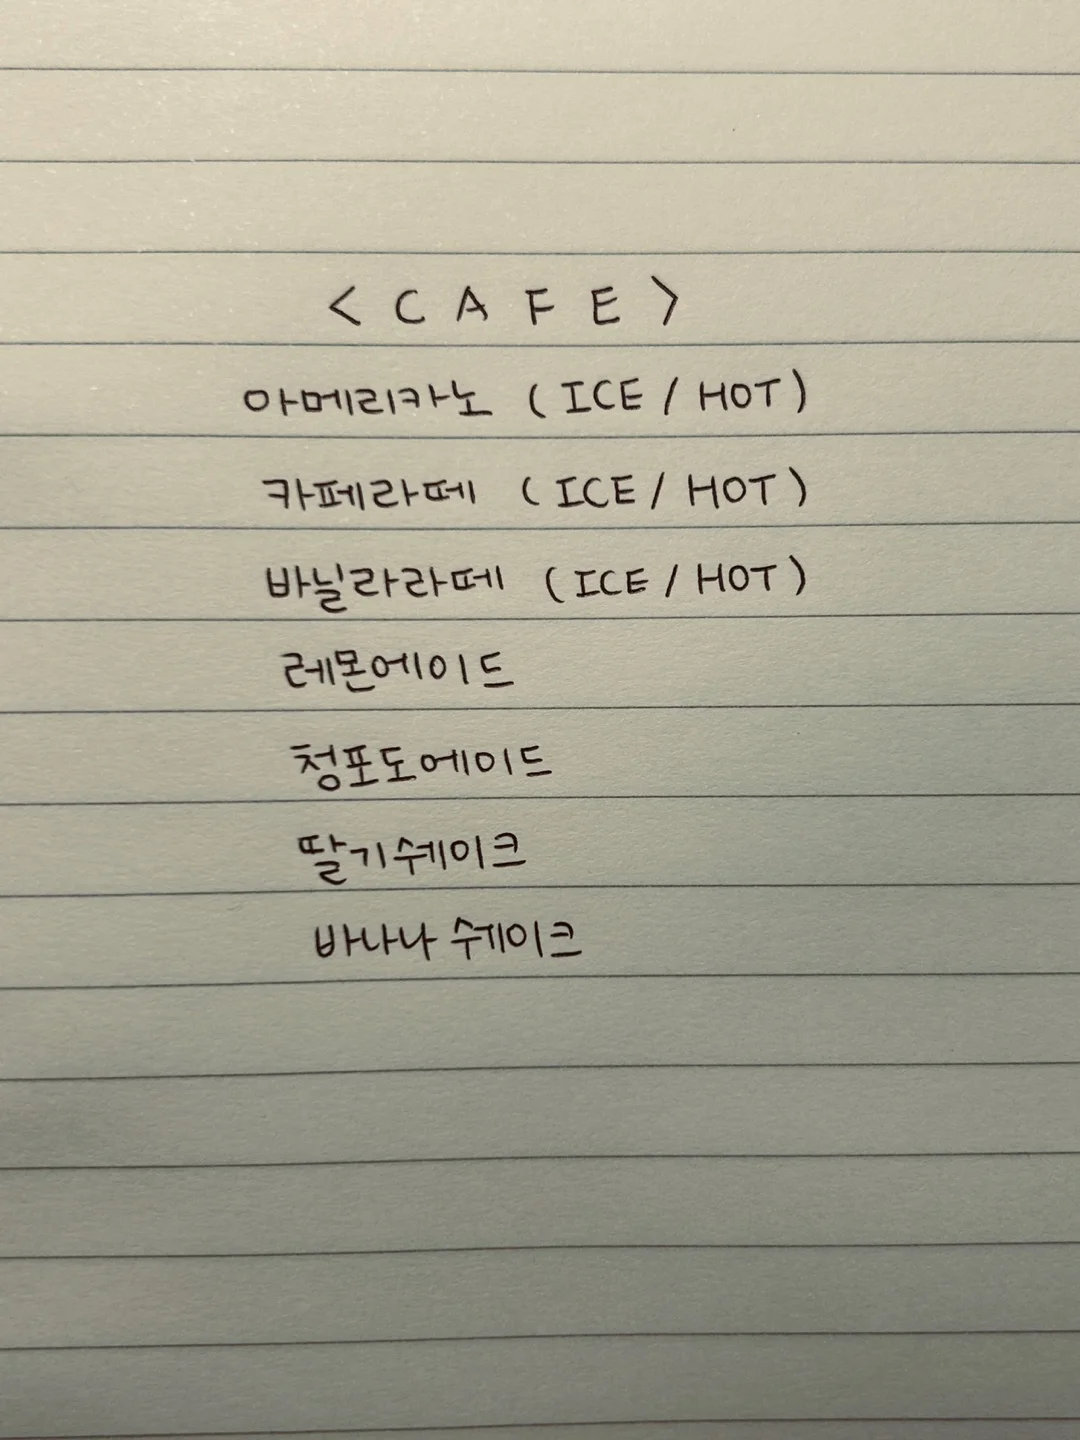 < C A F E >
아메리카노 ( ICE / HOT )
카페라떼 ( ICE / HOT )
바닐라라떼 ( ICE / HOT )
레몬에이드
청포도에이드
딸기쉐이크
바나나 쉐이크